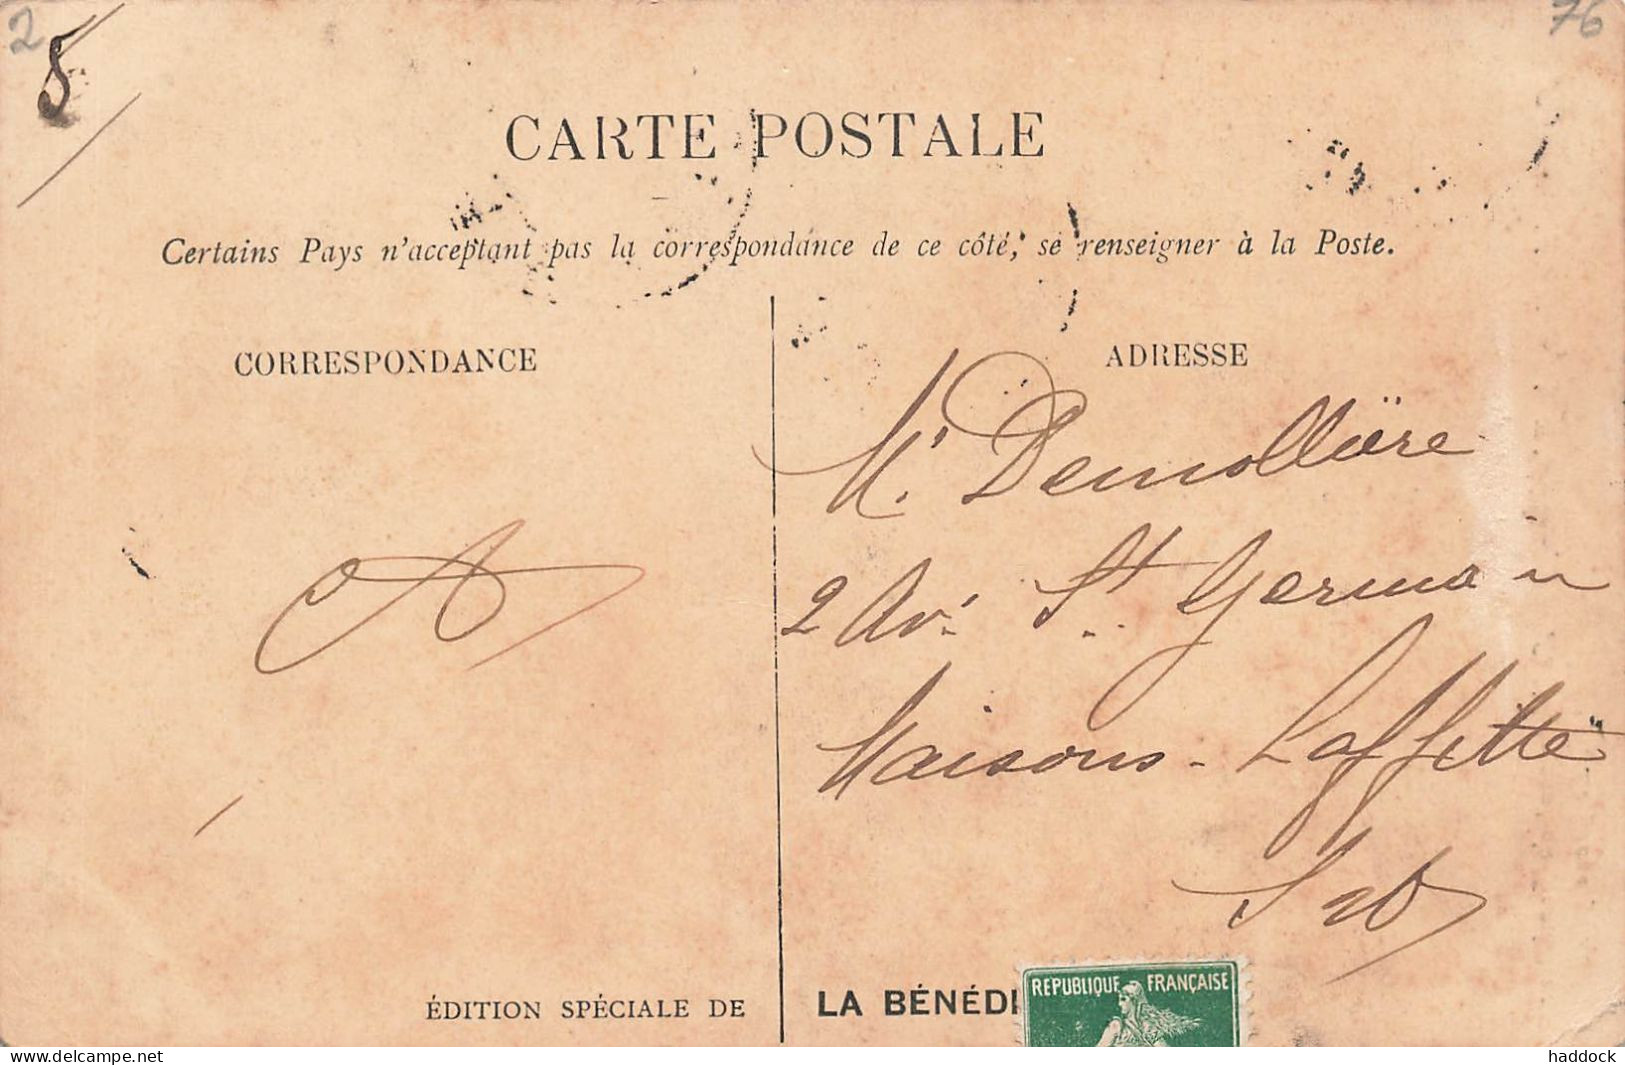 2
76
8
CARTE POSTALE
Certains Pays n'acceptant pas la correspondance de ce côté, se renseigner à la Poste.
CORRESPONDANCE
ADRESSE
Mr. Demollière
2 Av. St. Germain
Maisons-Laffitte
S et O
ÉDITION SPÉCIALE DE LA BÉNÉDI
REPUBLIQUE FRANÇAISE
delcampe.net
haddock